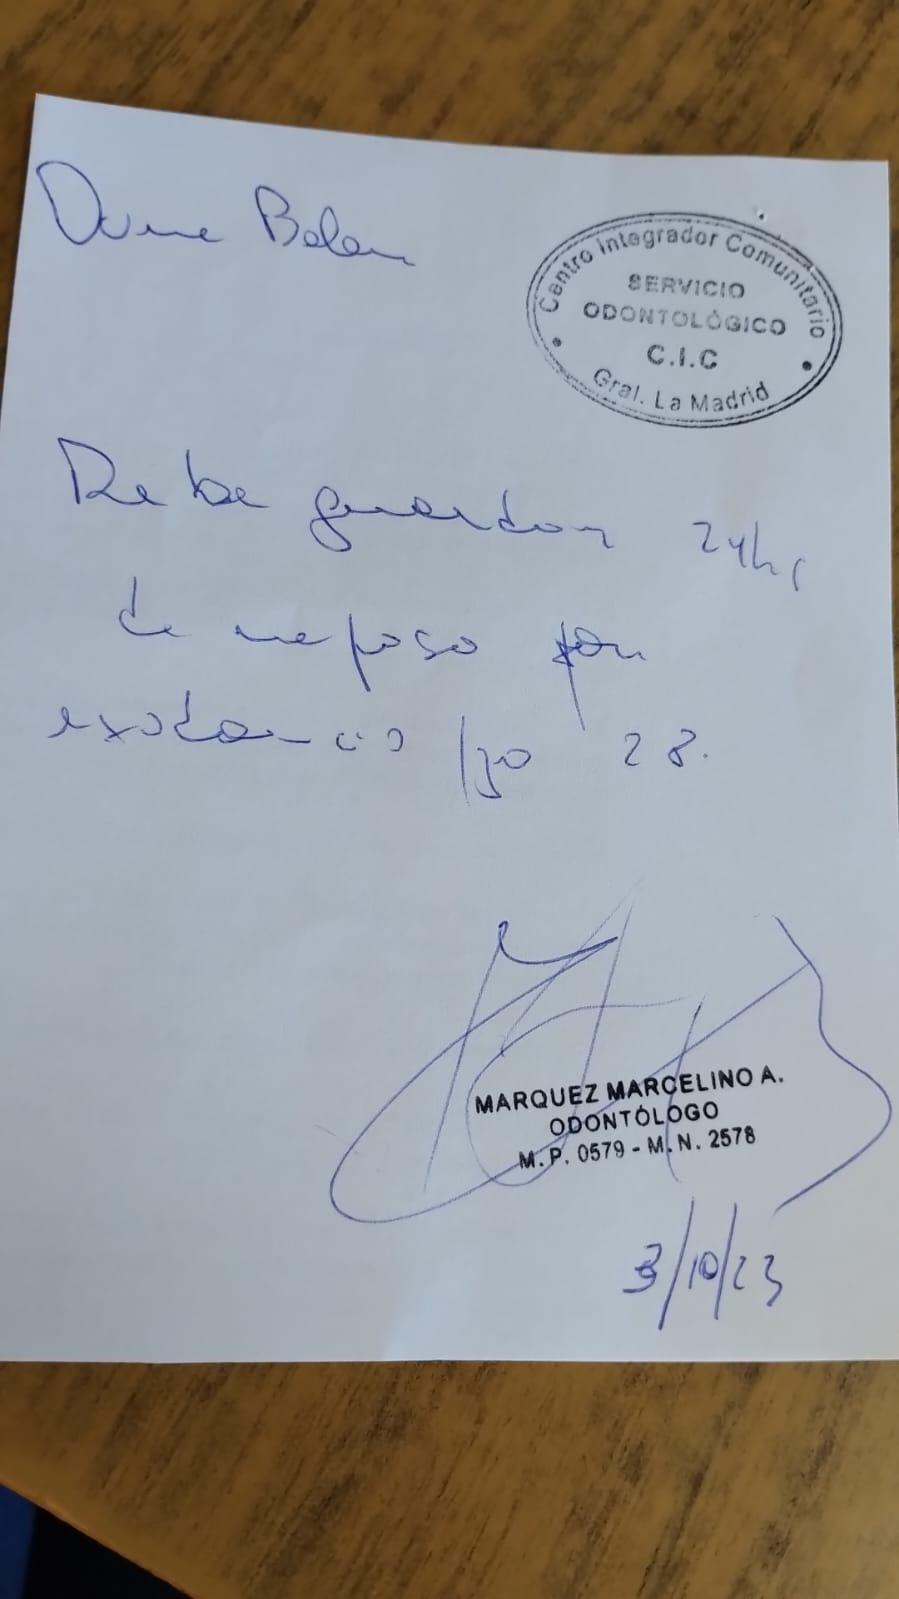 Belen
Centro Integrador Comunitario
SERVICIO
ODONTOLÓGICO
C.I.C
Gral. La Madrid
Debe guardar 24hs
de reposo por
exodoncia pza 28.
MARQUEZ MARCELINO A.
ODONTÓLOGO
M.P. 0579 - M.N. 2578
3/10/23